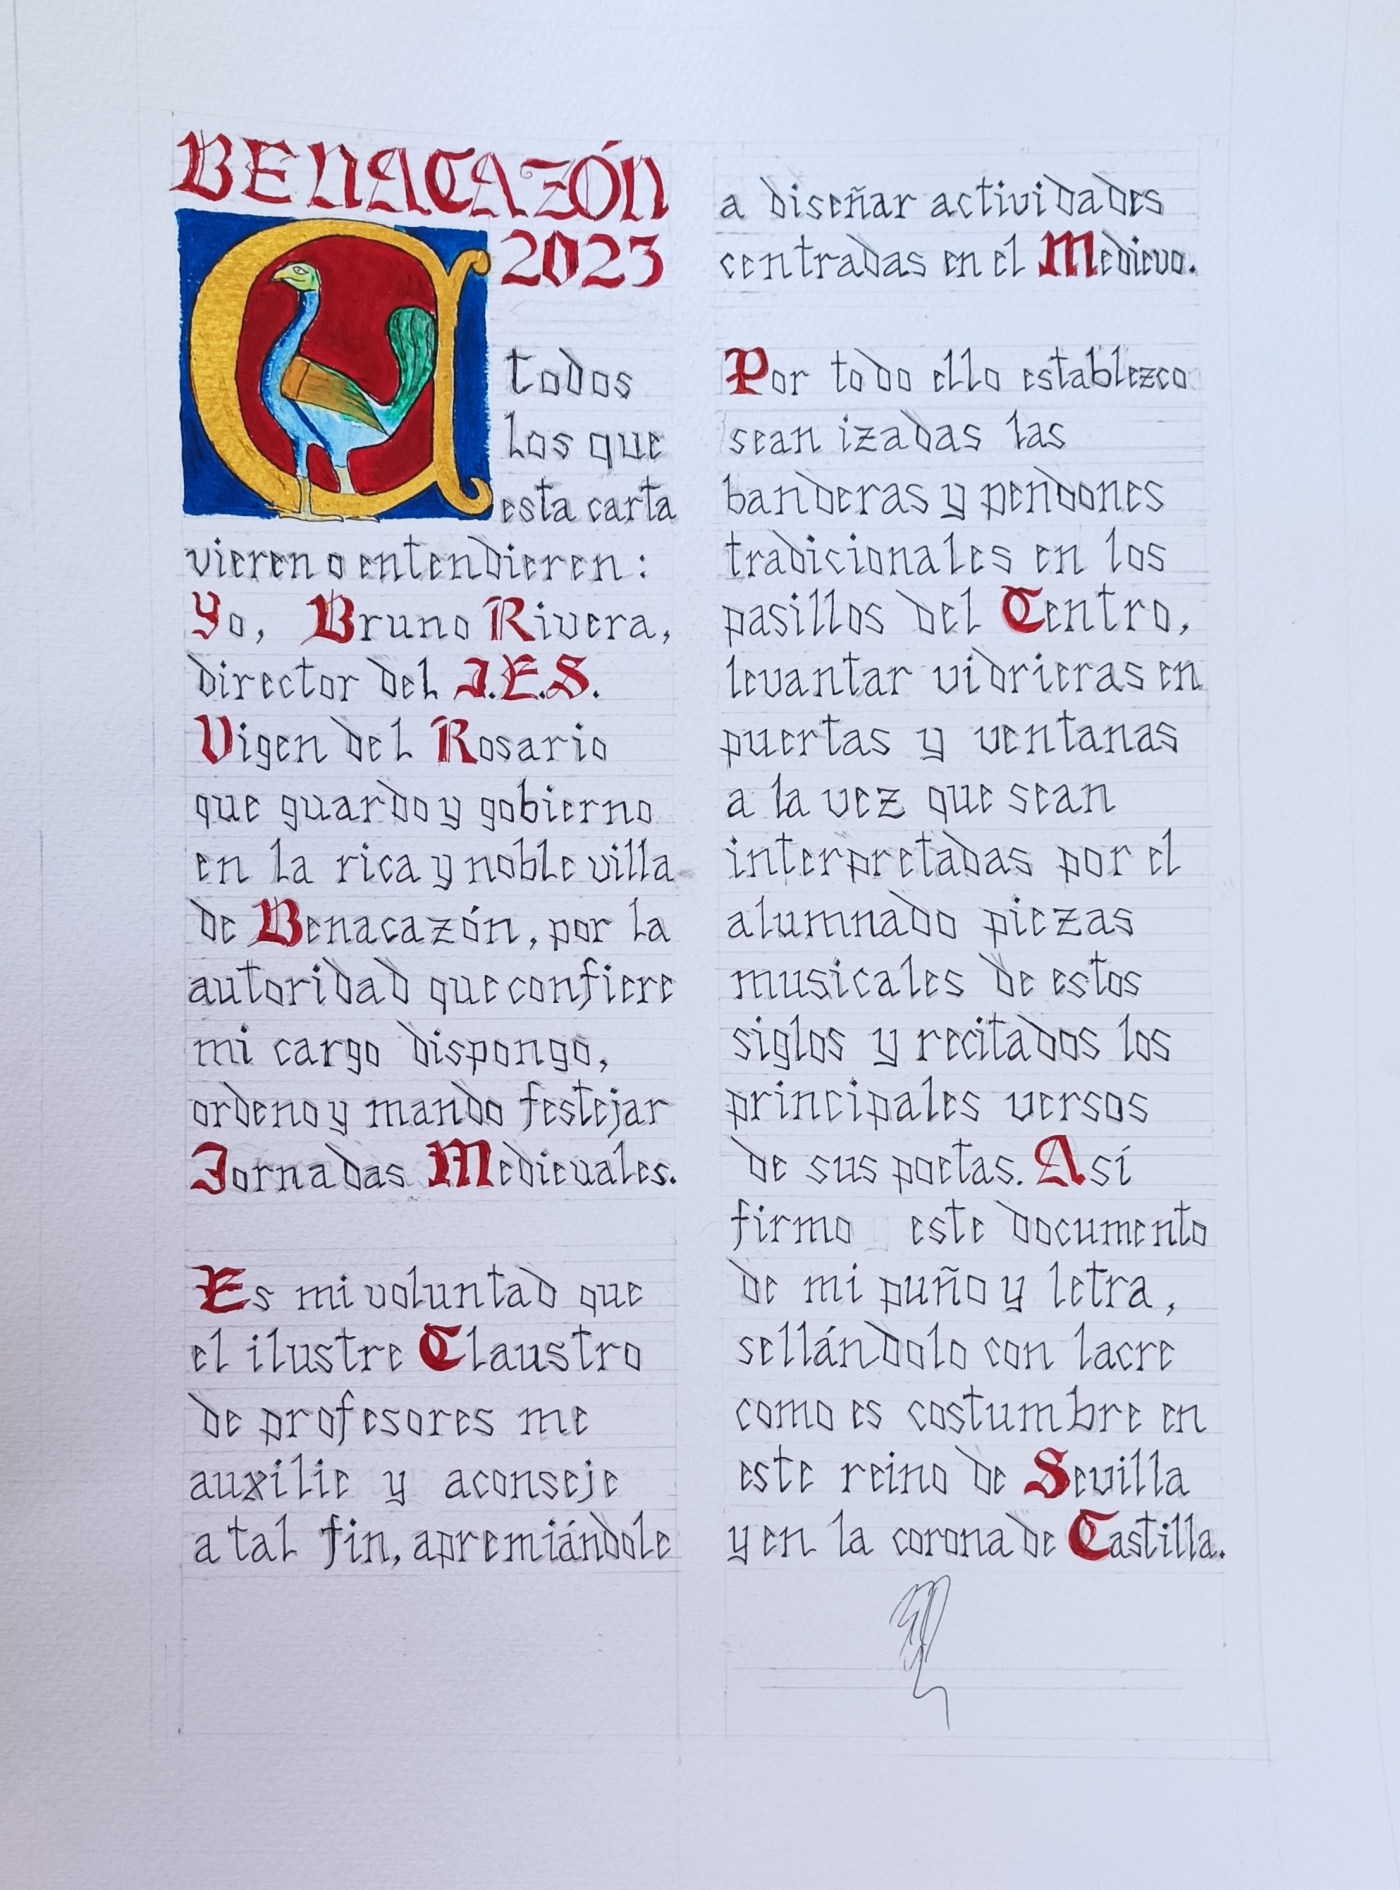 BENACAZÓN
2023
A todos
los que
esta carta
vieren o entendieren:
Yo, Bruno Rivera,
director del I.E.S.
Vigen del Rosario
que guardo y gobierno
en la rica y noble villa
de Benacazón, por la
autoridad que confiere
mi cargo dispongo,
ordeno y mando festejar
Jornadas Medievales.
Es mi voluntad que
el ilustre Claustro
de profesores me
auxilie y aconseje
a tal fin, apremiándole
a diseñar actividades
centradas en el Medievo.
Por todo ello establezco
sean izadas las
banderas y pendones
tradicionales en los
pasillos del Centro,
levantar vidrieras en
puertas y ventanas
a la vez que sean
interpretadas por el
alumnado piezas
musicales de estos
siglos y recitados los
principales versos
de sus poetas. Así
firmo este documento
de mi puño y letra,
sellándolo con lacre
como es costumbre en
este reino de Sevilla
y en la corona de Castilla.